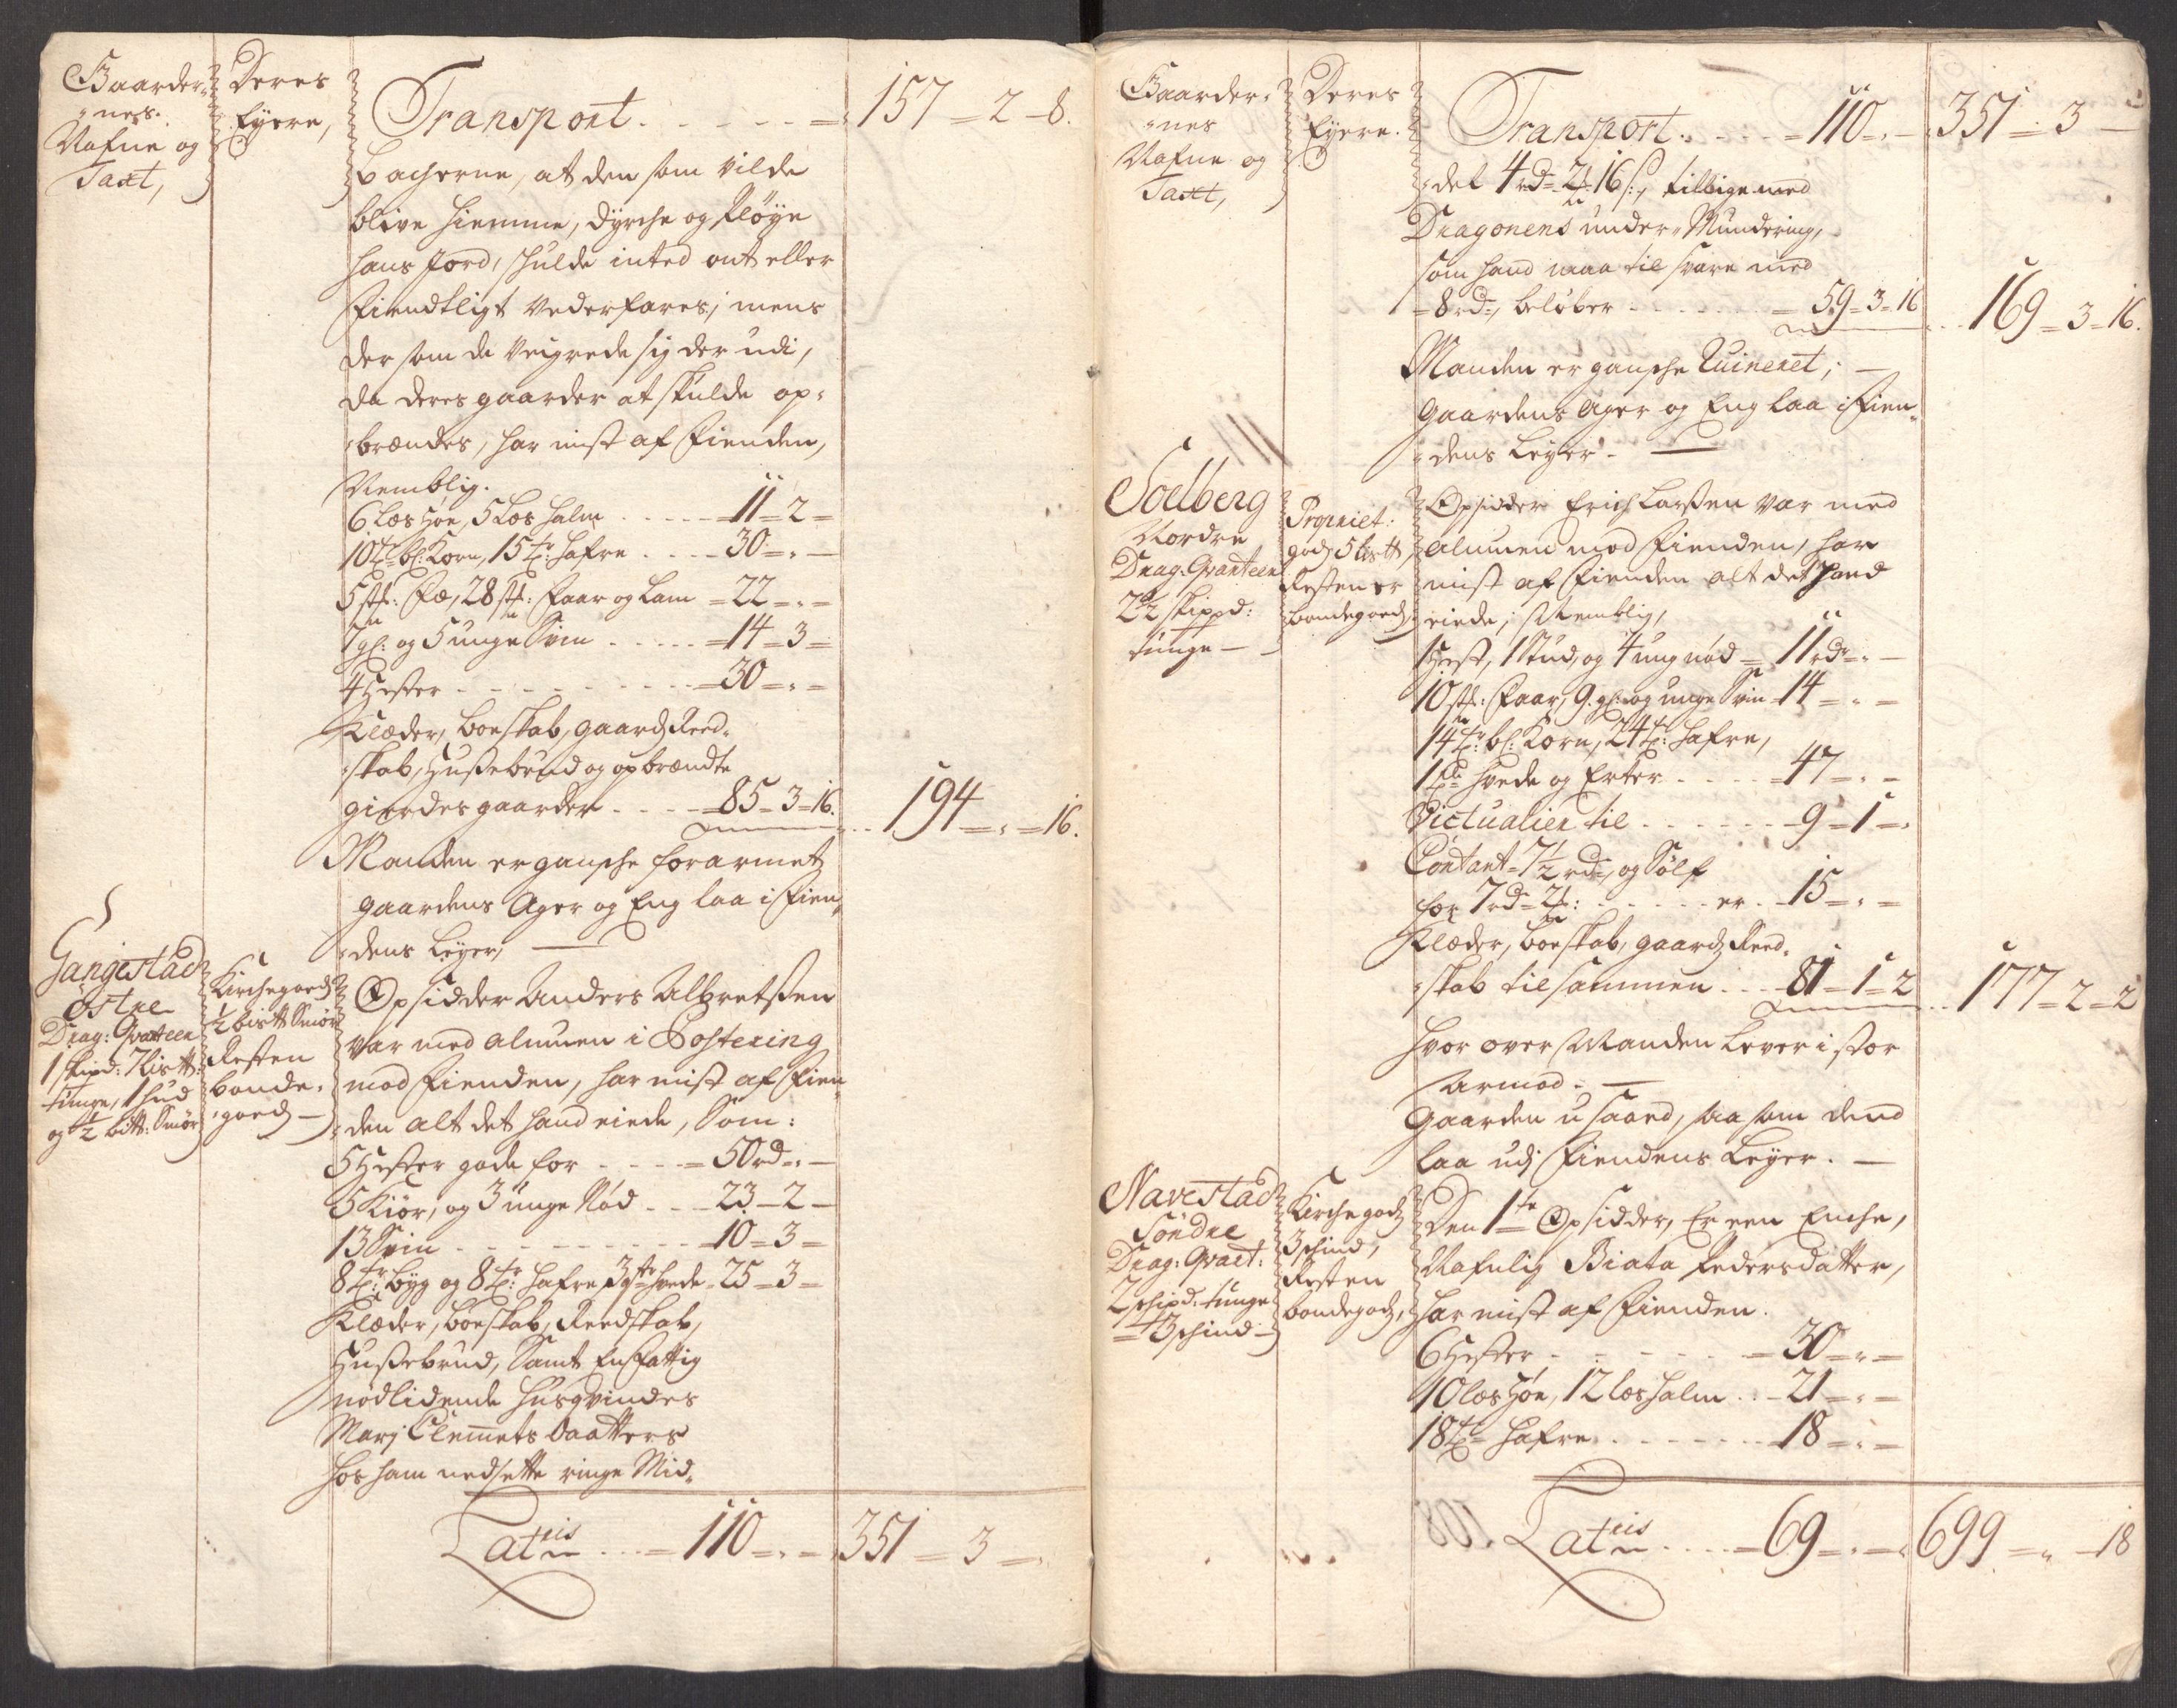 Gaarder-
nes
Nafne og
Taxt,
Deres
Eÿere,
Transport . . . . . = 157 = 2 = 8.
bacherne, at den som vilde
blive hiemme, dÿrche og Pløÿe
hans Jord, skulde inted ont eller
Fiendtligt vederfares, mens
der som de veigrede sig der udi,
da deres gaarder at skulde op-
brændes, har mist af Fienden,
Nemblig.
6 Læs Høe, 5 Læs halm . . . . . = 11 = 2 =
10 tr bl: Korn, 15 tr: Hafre . . . . = 30 = " =
5 st: Fæ, 28 st: Faar og Lam = 22 = " =
7 gl: og 5 unge Svin . . . . . = 14 = 3 =
4 Hester . . . . . . . . = 30 = " =
Klæder, boeskab, gaards Reed-
skab, Hussebund og opbrændte
gierdesgaarder . . . . = 85 = 3 = 16. . . 194 = " = 16.
Manden er gansche forarmet
gaardens Ager og Eng laa i Fien-
dens Leÿer,
Gangestad
østre
Drag: Qvarteer
1 skipd: 7 Listt:
tunge, 1 hud
og 1/2 bitt: Smør
Kirchegoeds
1/2 bistt Smør
Resten
bonde-
goeds
Opsidder Anders Albretssen
var med almuen i Postering
mod Fienden, har mist af Fien-
den alt det hand eiede, Som:
5 Hester gode for . . . . = 50 rd = " =
5 Kiør, og 3 unge Nød . . . 23 = 2 =
13 Svin . . . . . . . . = 10 = 3 =
8 tr: bÿg og 8 tr: hafre 3 str hvede = 25 = 3 =
Klæder, boeskab, Reedskab,
Hussebund, Samt en Fattig
nødlidende huusqvindes
Marj Clemets Daatters
hos ham nedsette ringe Mid-
Lateris . . . = 110 = " = 351 = 3 = "
Gaarder-
nes
Nafne og
Taxt,
Deres
Eÿere.
Transport . . . . = 110 = " = 351 = 3 =
del 4 rd = 2 16 s:, tillige med
Dragonens under-Mundering,
som hand maa til svare med
= 8 rd, beløber . . . . . . = 59 = 3 = 16 . . 169 = 3 = 16.
Manden er gansche Ruineret;
Gaardens Ager og Eng laa i Fien-
dens Leÿer.
Soelberg
Nordre
Drag: Qvarteer
2 1/2 skippd:
tunge
Propriet:
gods 5 Listt,
Resten er
bondegoeds
Opsidder Erich Larssen var med
almuen mod Fienden, har
mist af Fienden alt det hand
eiede, Nemblig,
1 Hest, 1 Stud, og 4 ung nød = 11 rd = " =
10 st: Faar, 9. gl: og unge Svin = 14 = " =
14 tr: bl: Korn, 24 tr: Hafre,
1 tde hvede og Erter . . . . = 47 = " =
Victualier til . . . . . . = 9 = 1 = "
Contant = 7 1/2 rd, og Sølf
for 7 rd = 2 : . . . . . er . . 15 = " =
Klæder, boeskab, gaards Reed-
skab tilsammen . . . = 81 = 1 = 2 . . 177 = 2 = 2
Hvor over Manden lever i stor
armod.
gaarden usaaed, saa som dend
laa udj Fiendens Leÿer.
Navestad
Søndre
Drag: Qvart:
2 schipd: tunge
= 4 3 schind
Kirchegods
3 schind,
Resten
bondegods,
Den 1te Opsidder, Er een Enche,
Nafnlig Biata Pedersdatter,
har mist af Fienden.
6 Hester . . . . . . . = 30 = " =
10 læs Høe, 12 læs halm . . = 21 = " =
18 tr Hafre . . . . . . = 18 = " =
Lateris . . . . = 69 = " = 699 = " = 18